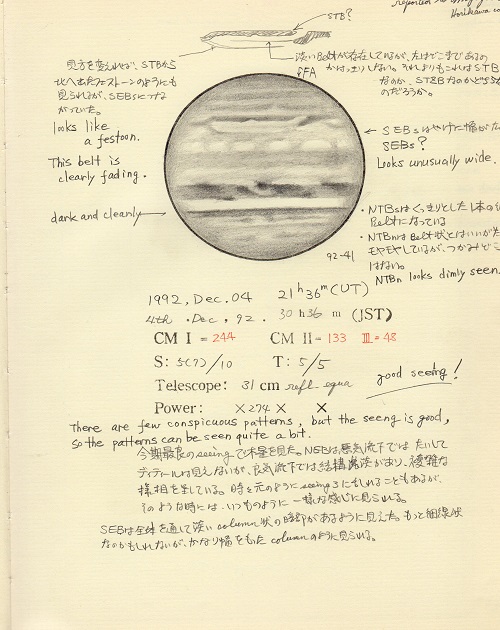 reported
Horikawa
STB?
見方を変えれば、STBから
北へ出たフェストーンのようにも
見られるが、SEBsにつな
がっていた。
淡いBeltが存在しているが、左はどこまであるの
かはっきりしない。それよりもこれはSTB
なのか、STZBなのかどちら
のだろうか。
SFA
looks like
a festoon.
This belt is
clearly fading.
dark and cleanly
SEBsはやけに幅が
SEBs?
Looks unusually wide.
・NTBsはくっきりとした1本の
Beltになっている
・NTBnはBelt状とはいいが
モヤモヤしているが、つかみどこ
はない。
NTBn looks dimly seen.
92-41
1992, Dec. 04 21h 36m (UT)
4th . Dec, 92. 30h36 m (JST)
CM I = 244 CM II = 133 III = 48
S: 5(7)/10 T: 5/5
Telescope: 31 cm refl. equa
good seeing!
Power: ×274 × ×
There are few conspicuous patterns, but the seeng is good,
so the patterns can be seen quite a bit.
今期最良のseeingで木星を見た。NEBは悪気流下ではたいして
ディティールは見えないが、良気流下では結構濃淡があり、複雑な
様相を呈している。時々元のようにseeing 3にもどれることもあるが、
そのような時には、いつものように一様な感じに見られる。
SEBは全体を通して淡いcolumn状の暗部があるように見えた。もっと細線状
なのかもしれないが、かなり幅をもったcolumnのように見られる。